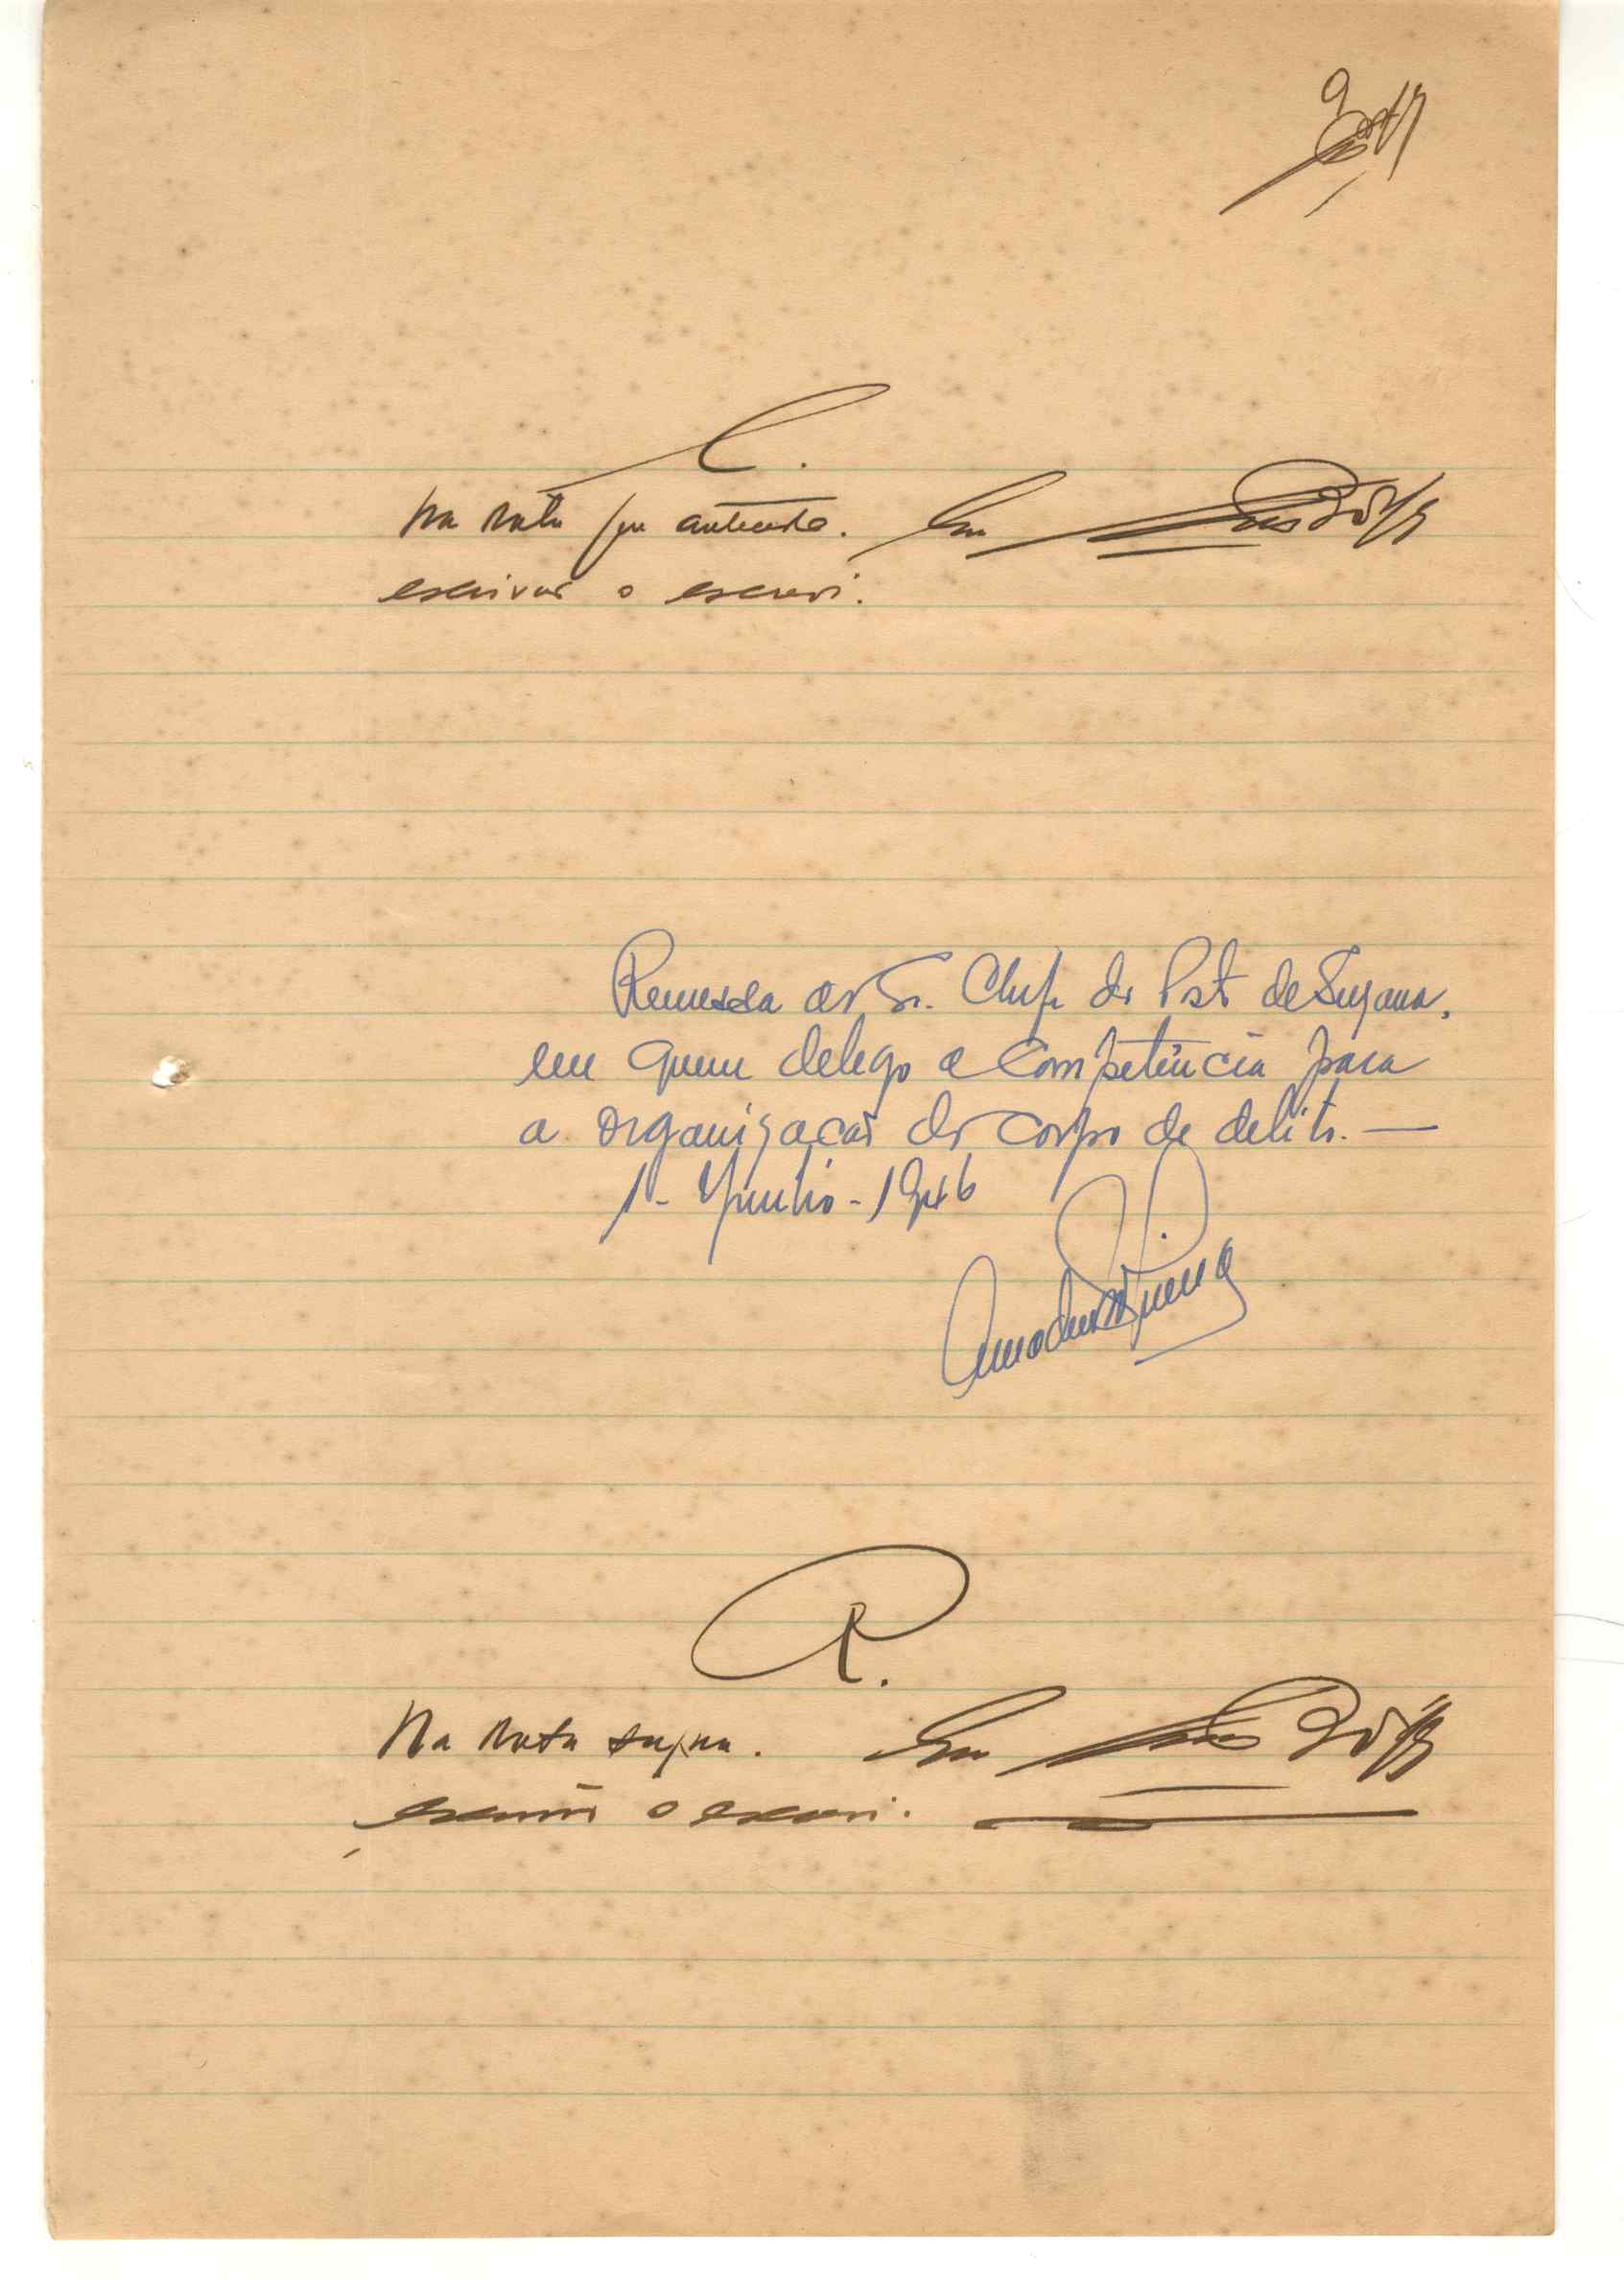 9
C.
Na data que antecede. Eu
escrivão o escrevi.
Remessa ao Sr. Chefe do Posto de Suzana,
em quem delego a competência para
a organização do corpo de delito. —
1 - Junho - 1946
R.
Na data supra. Eu
escrivão o escrevi.